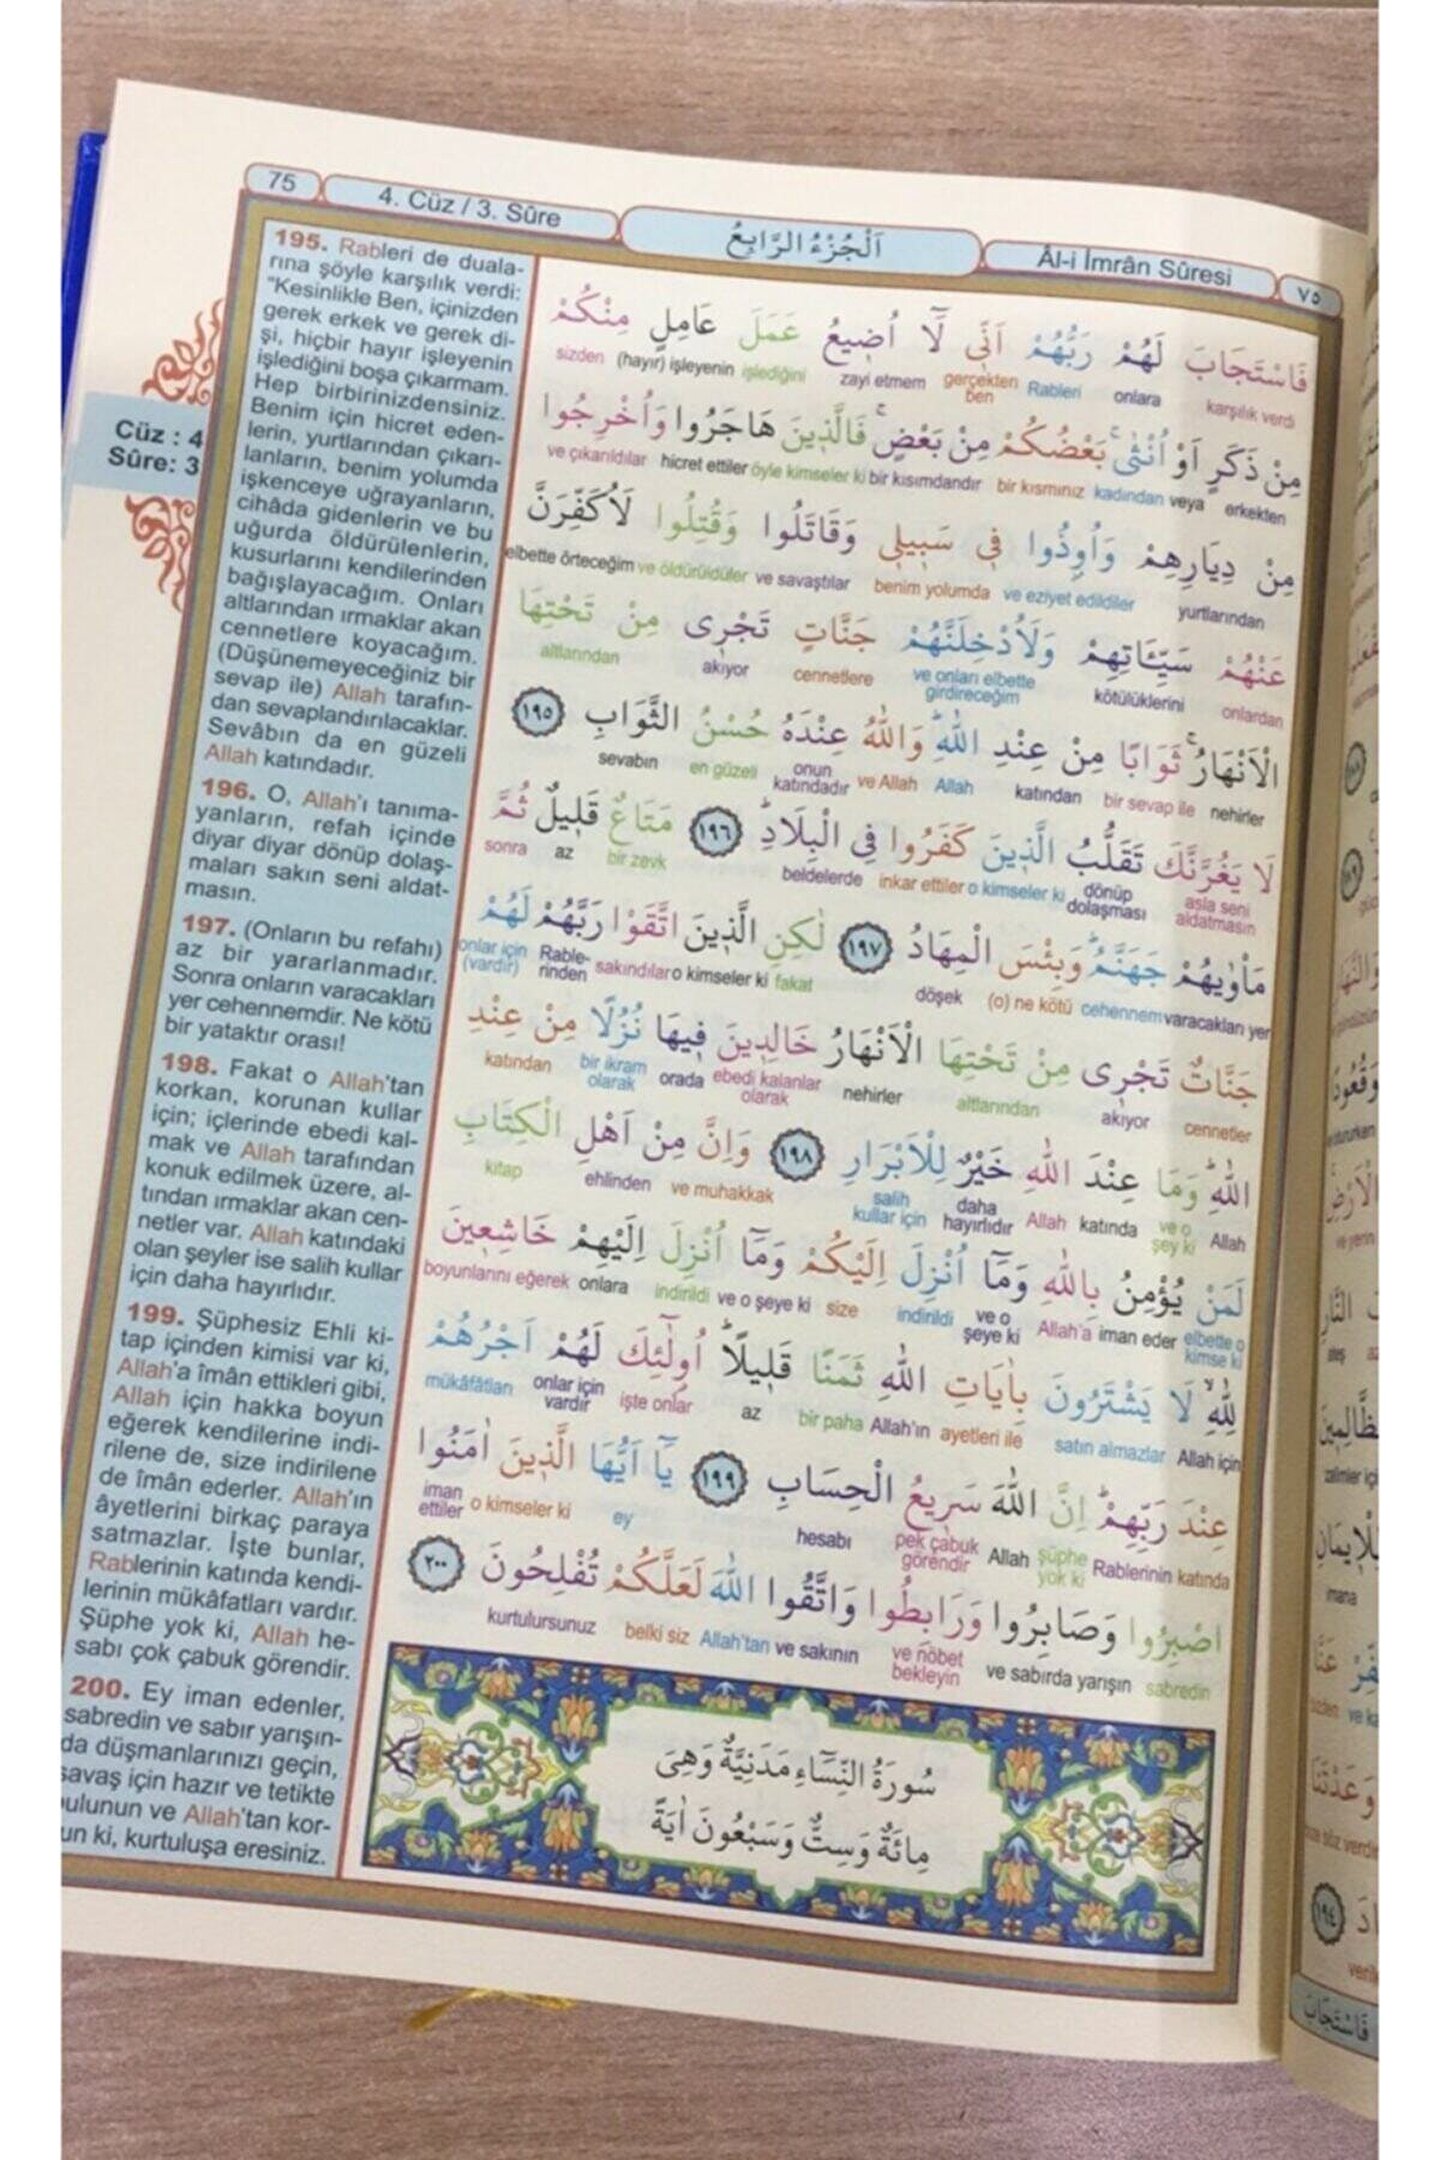 75
4. Cüz / 3. Sûre
اَلْجُزْءُ الرَّابِعُ
Âl-i İmrân Sûresi
٧٥
Cüz : 4
Sûre: 3
195. Rableri de duala-
rına şöyle karşılık verdi:
"Kesinlikle Ben, içinizden
gerek erkek ve gerek di-
şi, hiçbir hayır işleyenin
işlediğini boşa çıkarmam.
Hep birbirinizdensiniz.
Benim için hicret eden-
lerin, yurtlarından çıkarı-
lanların, benim yolumda
işkenceye uğrayanların,
cihâda gidenlerin ve bu
uğurda öldürülenlerin,
kusurlarını kendilerinden
bağışlayacağım. Onları
altlarından ırmaklar akan
cennetlere koyacağım.
(Düşünemeyeceğiniz bir
sevap ile) Allah tarafın-
dan sevaplandırılacaklar.
Sevâbın da en güzeli
Allah katındadır.
196. O, Allah'ı tanıma-
yanların, refah içinde
diyar diyar dönüp dolaş-
maları sakın seni aldat-
masın.
197. (Onların bu refahı)
az bir yararlanmadır.
Sonra onların varacakları
yer cehennemdir. Ne kötü
bir yataktır orası!
198. Fakat o Allah'tan
korkan, korunan kullar
için; içlerinde ebedi kal-
mak ve Allah tarafından
konuk edilmek üzere, al-
tından ırmaklar akan cen-
netler var. Allah katındaki
olan şeyler ise salih kullar
için daha hayırlıdır.
199. Şüphesiz Ehli ki-
tap içinden kimisi var ki,
Allah'a îmân ettikleri gibi,
Allah için hakka boyun
eğerek kendilerine indi-
rilene de, size indirilene
de îmân ederler. Allah'ın
âyetlerini birkaç paraya
satmazlar. İşte bunlar,
Rablerinin katında kendi-
lerinin mükâfatları vardır.
Şüphe yok ki, Allah he-
sabı çok çabuk görendir.
200. Ey iman edenler,
sabredin ve sabır yarışın-
da düşmanlarınızı geçin,
savaş için hazır ve tetikte
bulunun ve Allah'tan kor-
un ki, kurtuluşa eresiniz.
فَاسْتَجَابَ لَهُمْ رَبُّهُمْ اَنّ۪ي لَٓا اُض۪يعُ عَمَلَ عَامِلٍ مِنْكُمْ
karşılık verdi onlara Rableri gerçekten ben zayi etmem işlediğini (hayır) işleyenin sizden
مِنْ ذَكَرٍ اَوْ اُنْثٰىۚ بَعْضُكُمْ مِنْ بَعْضٍۚ فَالَّذ۪ينَ هَاجَرُوا وَاُخْرِجُوا
erkekten veya kadından bir kısmınız bir kısımdandır öyle kimseler ki hicret ettiler ve çıkarıldılar
مِنْ دِيَارِهِمْ وَاُو۫ذُوا ف۪ي سَب۪يل۪ي وَقَاتَلُوا وَقُتِلُوا لَاُكَفِّرَنَّ
yurtlarından ve eziyet edildiler benim yolumda ve savaştılar ve öldürüldüler elbette örteceğim
عَنْهُمْ سَيِّـَٔاتِهِمْ وَلَاُدْخِلَنَّهُمْ جَنَّاتٍ تَجْر۪ي مِنْ تَحْتِهَا
onlardan kötülüklerini ve onları elbette girdireceğim cennetlere akıyor altlarından
الْاَنْهَارُۚ ثَوَابًا مِنْ عِنْدِ اللّٰهِۜ وَاللّٰهُ عِنْدَهُ حُسْنُ الثَّوَابِ ١٩٥
nehirler bir sevap ile katından Allah ve Allah onun katındadır en güzeli sevabın
لَا يَغُرَّنَّكَ تَقَلُّبُ الَّذ۪ينَ كَفَرُوا فِي الْبِلَادِۜ ١٩٦ مَتَاعٌ قَل۪يلٌ ثُمَّ
asla seni aldatmasın dönüp dolaşması o kimseler ki inkar ettiler beldelerde bir zevk az sonra
مَأْوٰيهُمْ جَهَنَّمُۜ وَبِئْسَ الْمِهَادُ ١٩٧ لٰكِنِ الَّذ۪ينَ اتَّقَوْا رَبَّهُمْ لَهُمْ
varacakları yer cehennem (o) ne kötü döşek fakat o kimseler ki sakındılar Rable-rinden onlar için (vardır)
جَنَّاتٌ تَجْر۪ي مِنْ تَحْتِهَا الْاَنْهَارُ خَالِد۪ينَ ف۪يهَا نُزُلًا مِنْ عِنْدِ
cennetler akıyor altlarından nehirler ebedi kalanlar olarak orada bir ikram olarak katından
اللّٰهِۜ وَمَا عِنْدَ اللّٰهِ خَيْرٌ لِلْاَبْرَارِ ١٩٨ وَاِنَّ مِنْ اَهْلِ الْكِتَابِ
Allah ve o şey ki katında Allah daha hayırlıdır salih kullar için ve muhakkak ehlinden kitap
لَمَنْ يُؤْمِنُ بِاللّٰهِ وَمَٓا اُنْزِلَ اِلَيْكُمْ وَمَٓا اُنْزِلَ اِلَيْهِمْ خَاشِع۪ينَ
elbette o kimse ki iman eder Allah'a ve o şeye ki indirildi size ve o şeye ki indirildi onlara boyunlarını eğerek
لِلّٰهِۙ لَا يَشْتَرُونَ بِاٰيَاتِ اللّٰهِ ثَمَنًا قَل۪يلًاۜ اُو۬لٰٓئِكَ لَهُمْ اَجْرُهُمْ
Allah için satın almazlar ayetleri ile Allah'ın bir paha az işte onlar onlar için vardır mükâfâtları
عِنْدَ رَبِّهِمْۜ اِنَّ اللّٰهَ سَر۪يعُ الْحِسَابِ ١٩٩ يَٓا اَيُّهَا الَّذ۪ينَ اٰمَنُوا
katında Rablerinin şüphe yok ki Allah pek çabuk görendir hesabı ey o kimseler ki iman ettiler
اصْبِرُوا وَصَابِرُوا وَرَابِطُوا وَاتَّقُوا اللّٰهَ لَعَلَّكُمْ تُفْلِحُونَ ٢٠٠
sabredin ve sabırda yarışın ve nöbet bekleyin ve sakının Allah'tan belki siz kurtulursunuz
سُورَةُ النِّسَٓاءِ مَدَنِيَّةٌ وَهِيَ
مِائَةٌ وَسِتٌّ وَسَبْعُونَ اٰيَةً
١٩٤
فَاسْتَجَابَ